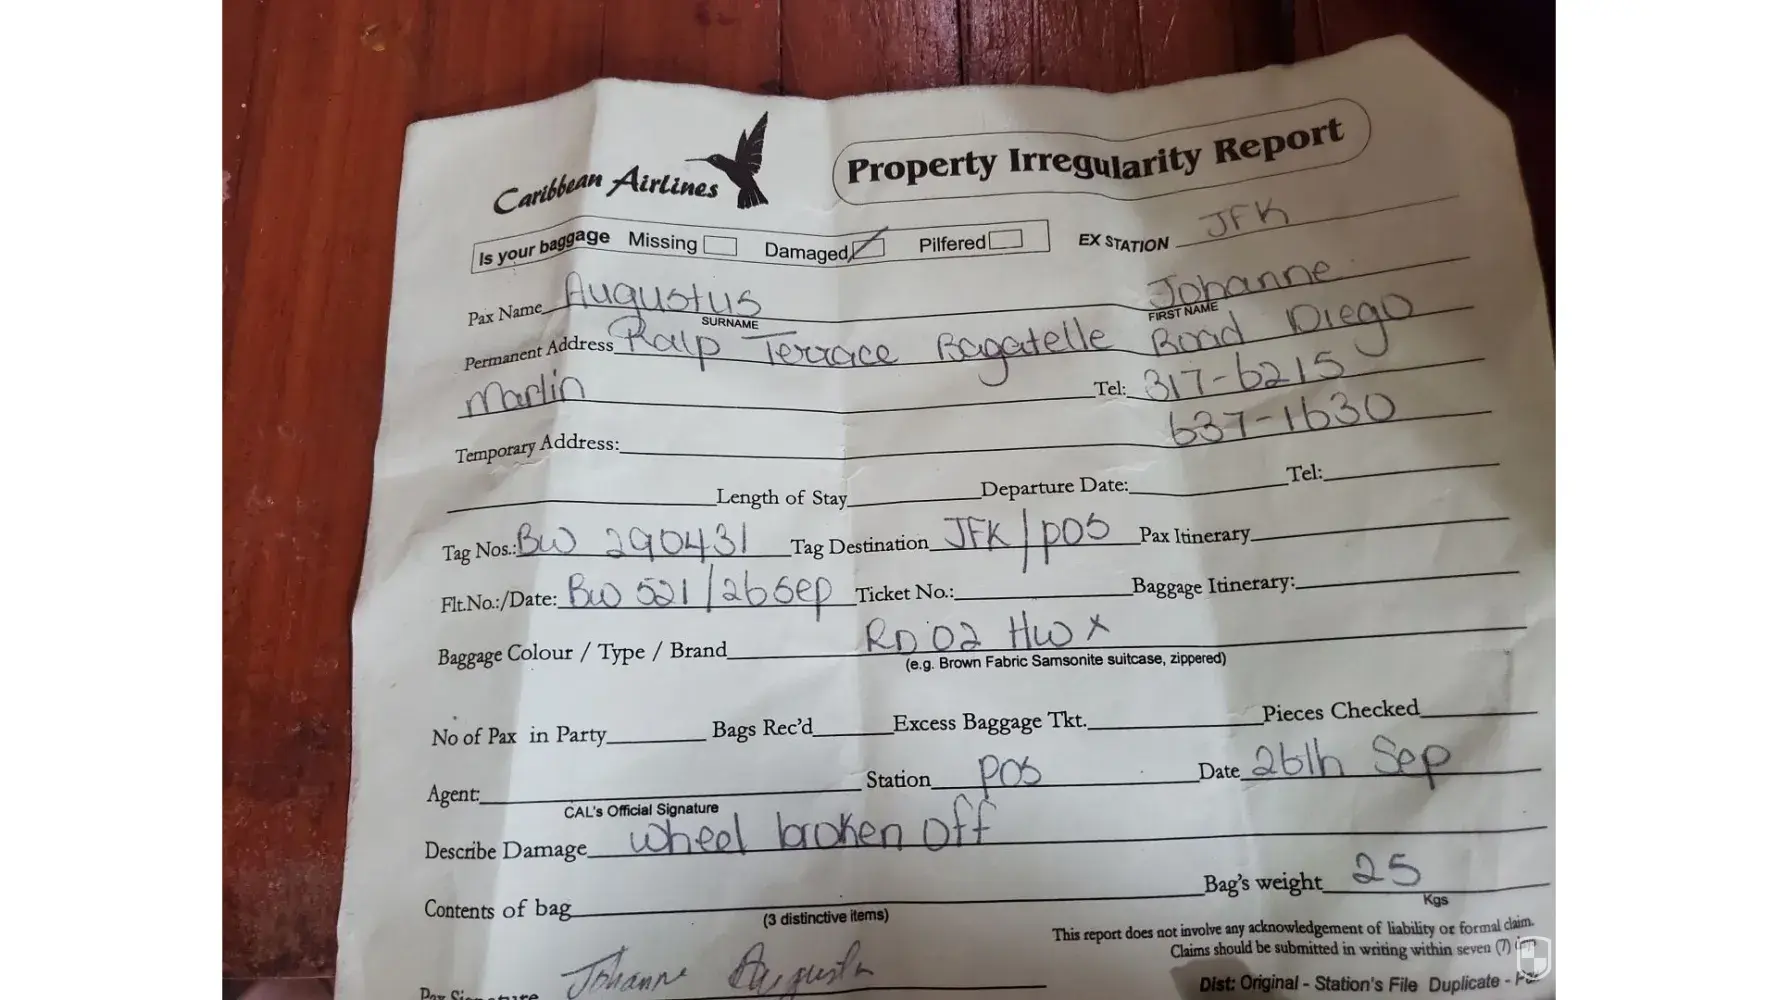 Caribbean Airlines
Property Irregularity Report
Is your baggage Missing Damaged Pilfered EX STATION JFK
Pax Name Augustus Johanne
SURNAME FIRST NAME
Permanent Address Ralp Terrace Bagatelle Road Diego
Martin Tel: 317-6215
637-1630
Temporary Address:
Length of Stay Departure Date: Tel:
Tag Nos.: BW 290431 Tag Destination JFK/POS Pax Itinerary
Flt.No.:/Date: BW 521/26 Sep Ticket No.: Baggage Itinerary:
Baggage Colour / Type / Brand RD 02 HW X
(e.g. Brown Fabric Samsonite suitcase, zippered)
No of Pax in Party Bags Rec'd Excess Baggage Tkt. Pieces Checked
Agent: Station POS Date 26th Sep
CAL's Official Signature
Describe Damage wheel broken off
Bag's weight 25
Kgs
Contents of bag
(3 distinctive items)
This report does not involve any acknowledgement of liability or formal claim.
Claims should be submitted in writing within seven (7)
Pax Signature Johanne Augustus
Dist: Original - Station's File Duplicate -